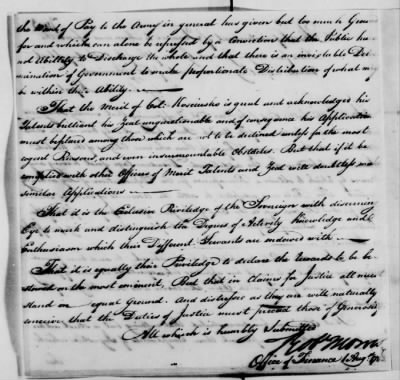 the Want of Pay to the Army in general has given but too much Grou
for and which can alone be refused by a Conviction that the Public ha
not Ability to Discharge the whole and that there is an inviolable De
mination of Government to make proportionate Distribution of what may
be within their Ability.
That the Merit of Col: Kosciusko is great and acknowledged his
Talents brilliant his Zeal unquestionable and of consequence his Application
must be placed among those which are not to be declined unless for the most
cogent Reasons, and even insurmountable Obstacles. But that if it be
complied with other Officers of Merit Talents and Zeal will doubtless make
similar Applications
That it is the Exclusive Priviledge of the Sovereign with discerning
Eye to mark and distinguish the Degrees of Activity Knowledge and
Enthusiasm which their Different Servants are endowed with
That it is equally their Priviledge to declare the Rewards to be be
stowed on the most eminent, But that in Claims for Justice all must
stand on equal Ground. And distressed as they are will naturally
conceive that the Duties of Justice must precede those of Generosity
All which is humbly Submitted
Robt Morris
Office of Finance Augt